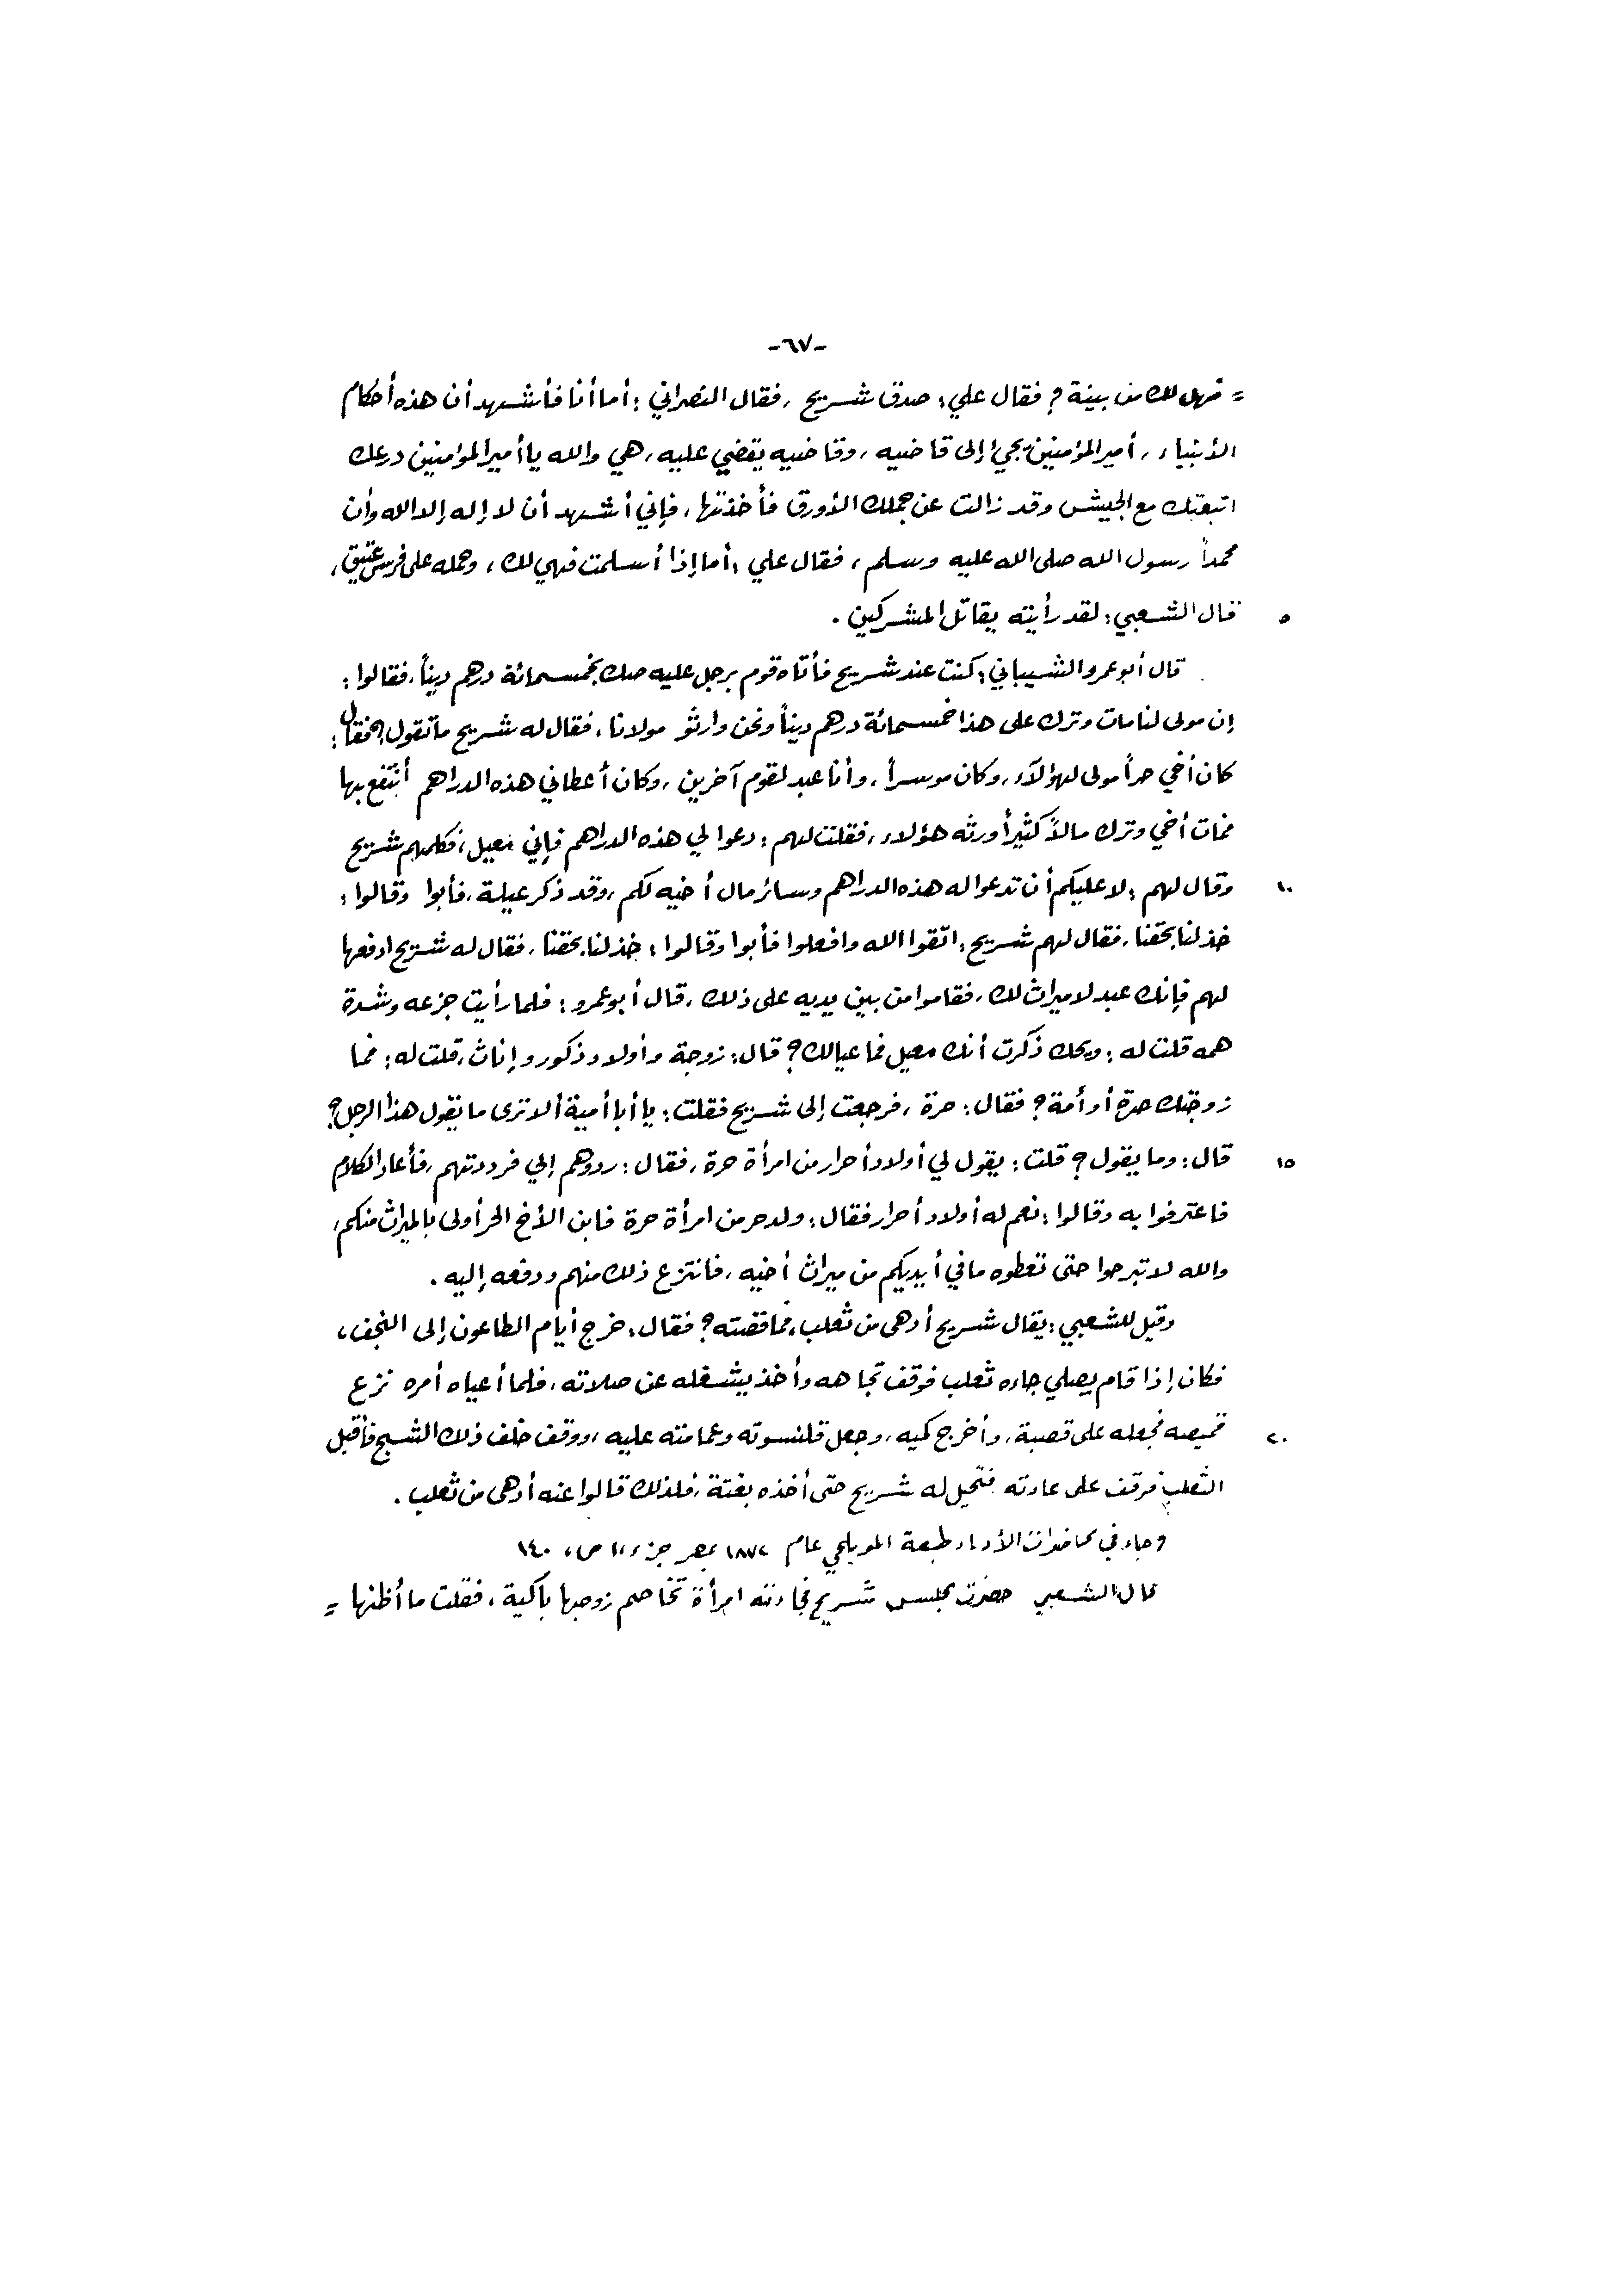 -٦٧-
= فهل لك من بينة؟ فقال علي: صدق شريح، فقال النصراني: أما أنا فأشهد أن هذه أحكام
الأنبياء، أمير المؤمنين يجيء إلى قاضيه، وقاضيه يقضي عليه، هي والله يا أمير المؤمنين درعك
اتبعتك مع الجيش وقد زالت عن جملك الأورق فأخذتها، فإني أشهد أن لا إله إلا الله وأن
محمداً رسول الله صلى الله عليه وسلم، فقال علي: أما إذا أسلمت فهي لك، وحمله على فرس عتيق،
٥ قال الشعبي: لقد رأيته يقاتل المشركين.
قال أبو عمرو الشيباني: كنت عند شريح فأتاه قوم برجل عليه صك بخمسمائة درهم ديناً، فقالوا:
إن مولى لنا مات وترك على هذا خمسمائة درهم ديناً ونحن وارثو مولانا، فقال له شريح ما تقول؟ فقال:
كان أخي حراً مولى لهؤلاء، وكان موسراً، وأنا عبد لقوم آخرين، وكان أعطاني هذه الدراهم أنتفع بها
فمات أخي وترك مالاً كثيراً ورثه هؤلاء، فقلت لهم: دعوا لي هذه الدراهم فإني معيل، فكلمهم شريح
١٠ وقال لهم: لا عليكم أن تدعوا له هذه الدراهم وسائر مال أخيه لكم، وقد ذكر عيلة، فأبوا وقالوا:
خذ لنا بحقنا، فقال لهم شريح: اتقوا الله وافعلوا فأبوا وقالوا: خذ لنا بحقنا، فقال له شريح ادفعها
لهم فإنك عبد لا ميراث لك، فقاموا من بين يديه على ذلك، قال أبو عمرو: فلما رأيت جزعه وشدة
همه قلت له: ويحك ذكرت أنك معيل فما عيالك؟ قال: زوجة وأولاد ذكور وإناث، قلت له: فما
زوجتك حرة أو أمة؟ فقال: حرة، فرجعت إلى شريح فقلت: يا أبا أمية ألا ترى ما يقول هذا الرجل؟
١٥ قال: وما يقول؟ قلت: يقول لي أولاد أحرار من امرأة حرة، فقال: ردوهم إلي فرددتهم، فأعاد الكلام
فاعترفوا به وقالوا: نعم له أولاد أحرار فقال: ولد حر من امرأة حرة فابن الأخ الحر أولى بالميراث منكم،
والله لا تبرحوا حتى تعطوه ما في أيديكم من ميراث أخيه، فانتزع ذلك منهم ودفعه إليه.
وقيل للشعبي: يقال شريح أدهى من ثعلب، فما قصته؟ فقال: خرج أيام الطاعون إلى النجف،
فكان إذا قام يصلي جاءه ثعلب فوقف تجاهه وأخذ يشغله عن صلاته، فلما أعياه أمره نزع
٢٠ قميصه فجعله على قصبة، وأخرج كميه، وجعل قلنسوته وعمامته عليه، ووقف خلف ذلك الشبح فأقبل
الثعلب فوقف على عادته فتحيل له شريح حتى أخذه بغتة، فلذلك قالوا عنه أدهى من ثعلب.
وجاء في محاضرات الأدباء طبعة المويلحي عام ١٨٧٠ بمصر جزء ١ ص، ١٤٠
قال الشعبي حضرت مجلس شريح فجاءته امرأة تخاصم زوجها باكية، فقلت ما أظنها =